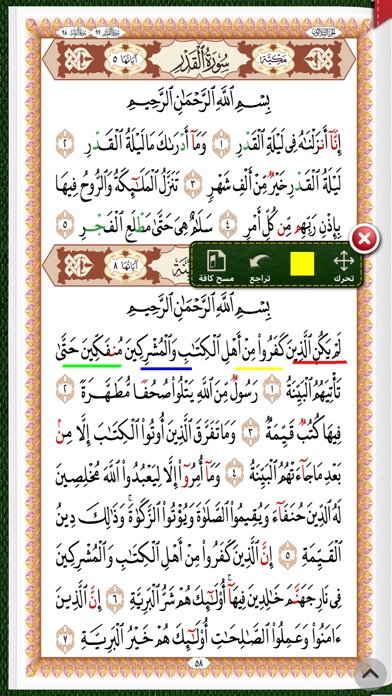 الجزء الثلاثون سورة القدر ٩٧ سورة البينة ٩٨
مكية سُورَةُ الْقَدْرِ آياتها ٥
بِسْمِ اللَّهِ الرَّحْمَٰنِ الرَّحِيمِ
إِنَّآ أَنزَلْنَٰهُ فِى لَيْلَةِ الْقَدْرِ ١ وَمَآ أَدْرَىٰكَ مَا لَيْلَةُ الْقَدْرِ ٢
لَيْلَةُ الْقَدْرِ خَيْرٌ مِّنْ أَلْفِ شَهْرٍ ٣ تَنَزَّلُ الْمَلَٰٓئِكَةُ وَالرُّوحُ فِيهَا
بِإِذْنِ رَبِّهِم مِّن كُلِّ أَمْرٍ ٤ سَلَٰمٌ هِىَ حَتَّىٰ مَطْلَعِ الْفَجْرِ ٥
تحرك تراجع مسح كافة
آياتها ٨
بِسْمِ اللَّهِ الرَّحْمَٰنِ الرَّحِيمِ
لَمْ يَكُنِ الَّذِينَ كَفَرُوا۟ مِنْ أَهْلِ الْكِتَٰبِ وَالْمُشْرِكِينَ مُنفَكِّينَ حَتَّىٰ
تَأْتِيَهُمُ الْبَيِّنَةُ ١ رَسُولٌ مِّنَ اللَّهِ يَتْلُوا۟ صُحُفًا مُّطَهَّرَةً ٢
فِيهَا كُتُبٌ قَيِّمَةٌ ٣ وَمَا تَفَرَّقَ الَّذِينَ أُوتُوا۟ الْكِتَٰبَ إِلَّا مِنۢ
بَعْدِ مَا جَآءَتْهُمُ الْبَيِّنَةُ ٤ وَمَآ أُمِرُوٓا۟ إِلَّا لِيَعْبُدُوا۟ اللَّهَ مُخْلِصِينَ
لَهُ الدِّينَ حُنَفَآءَ وَيُقِيمُوا۟ الصَّلَوٰةَ وَيُؤْتُوا۟ الزَّكَوٰةَ ۚ وَذَٰلِكَ دِينُ
الْقَيِّمَةِ ٥ إِنَّ الَّذِينَ كَفَرُوا۟ مِنْ أَهْلِ الْكِتَٰبِ وَالْمُشْرِكِينَ
فِى نَارِ جَهَنَّمَ خَٰلِدِينَ فِيهَآ ۚ أُو۟لَٰٓئِكَ هُمْ شَرُّ الْبَرِيَّةِ ٦ إِنَّ الَّذِينَ
ءَامَنُوا۟ وَعَمِلُوا۟ الصَّٰلِحَٰتِ أُو۟لَٰٓئِكَ هُمْ خَيْرُ الْبَرِيَّةِ ٧
٥٨